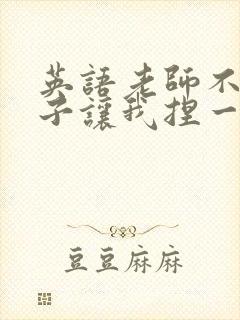 英語老師不
子讓我捏一
豆豆麻麻